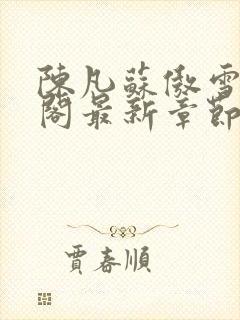 陳凡蘇傲雪
閣最新章節
賈春順